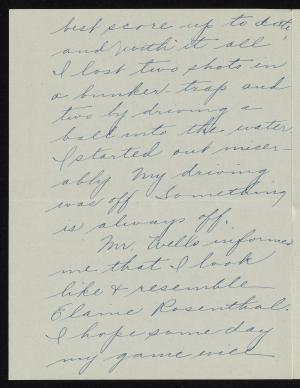 best score up to date,
and with it all
I lost two shots in
a bunker trap and
two by driving a
ball into the water.
I started out miser-
ably my driving
was off. Something
is always off.
Mr. Wells informed
me that I look
like & resemble
Elaine Rosenthal.
I hope some day
my game will